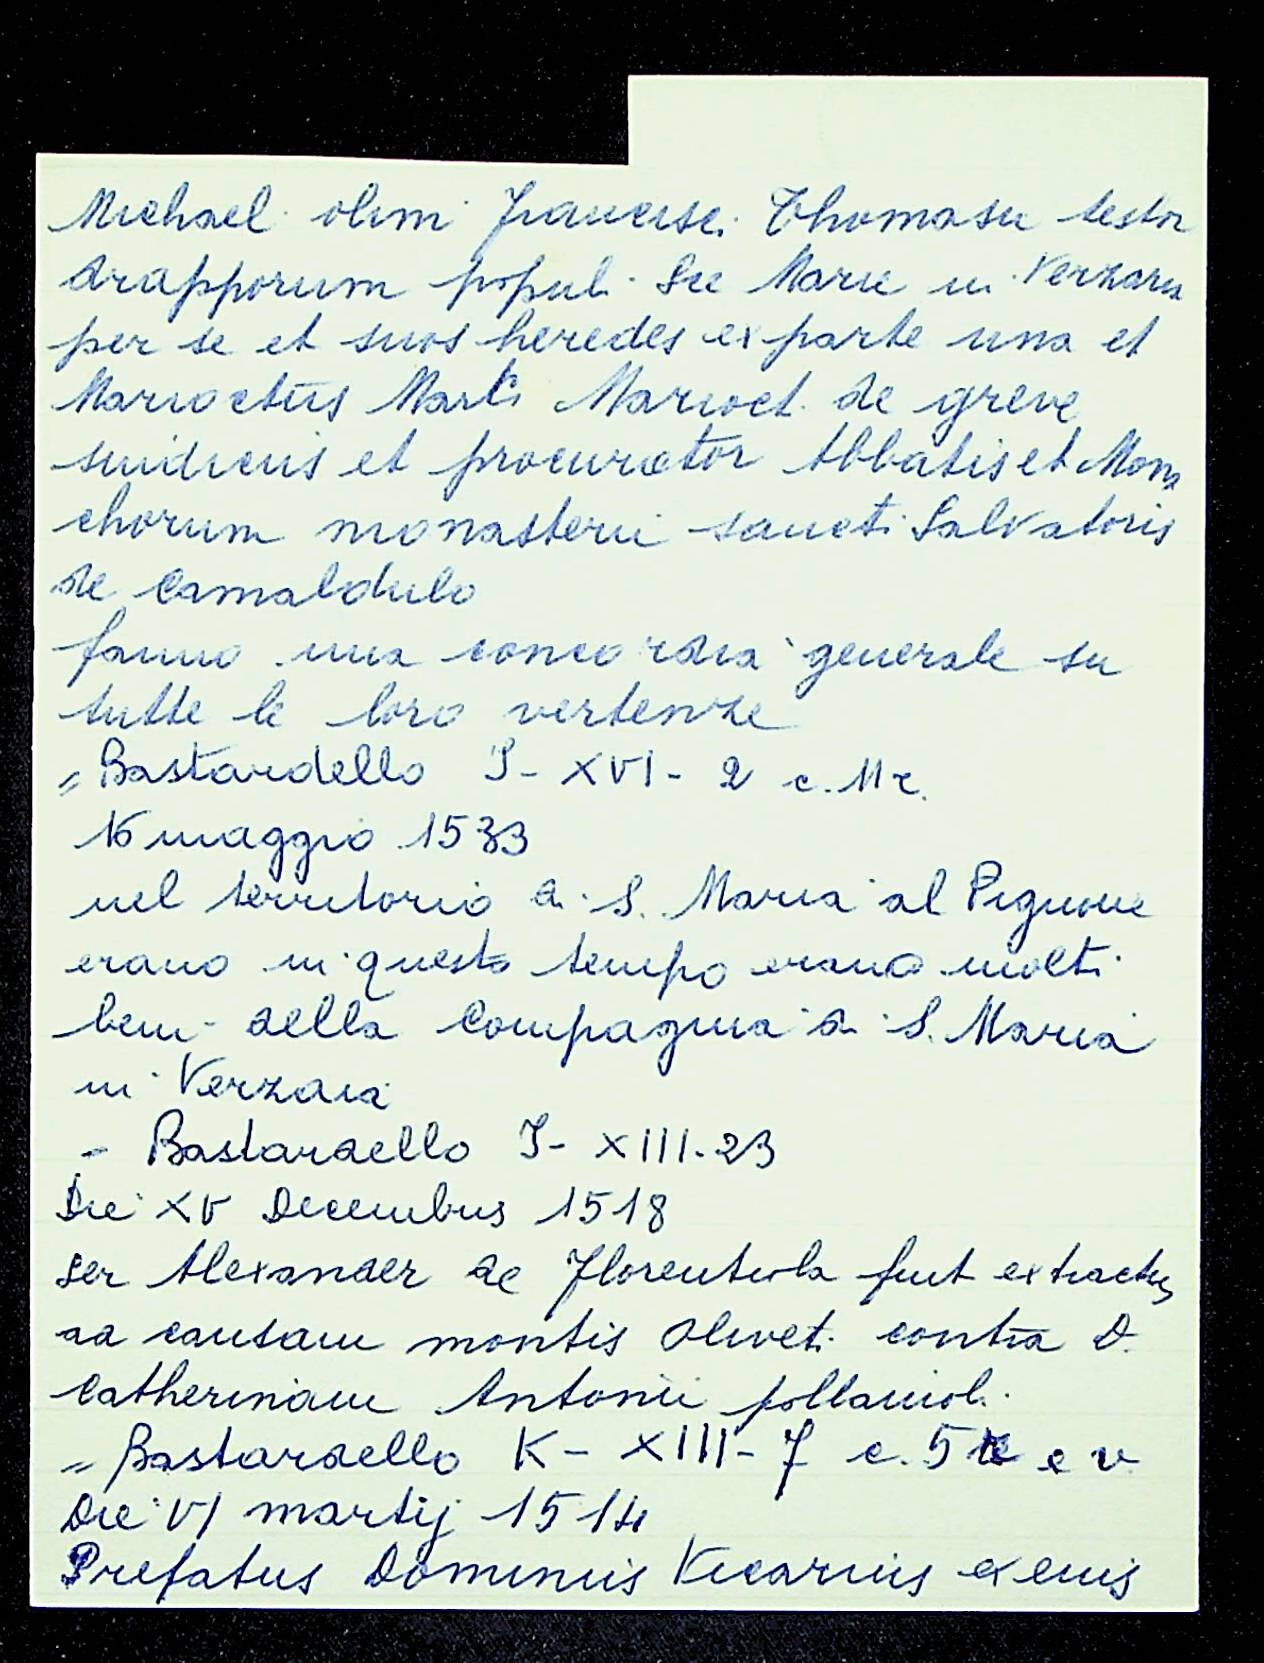 Michael olim Francisci Thomasii testor
drapporum populi See Marie in Verzaria
per se et suos heredes ex parte una et
Marioctus Marti Marioct. de greve
sindicus et procurator Abbatis et Mona
chorum monasterii sancti Salvatoris
de Camaldulo
fanno una concordia generale su
tutte le loro vertenze
= Bastardello J - XVI - 2 c. 11 r.
16 maggio 1533
nel territorio di S. Maria al Pignone
erano in questo tempo erano molti
beni della Compagnia di S. Maria
in Verzaia
- Bastardello J - XIII. 23
Die XV Decembris 1518
ser Alexander de Florentiola fuit extractus
ad causam montis Oliveti contra D.
Catherinam Antonii pollaiuoli
= Bastardello K - XIII - 7 c. 5 r e v.
Die VI martij 1514
Prefatus Dominus Vicarius exens